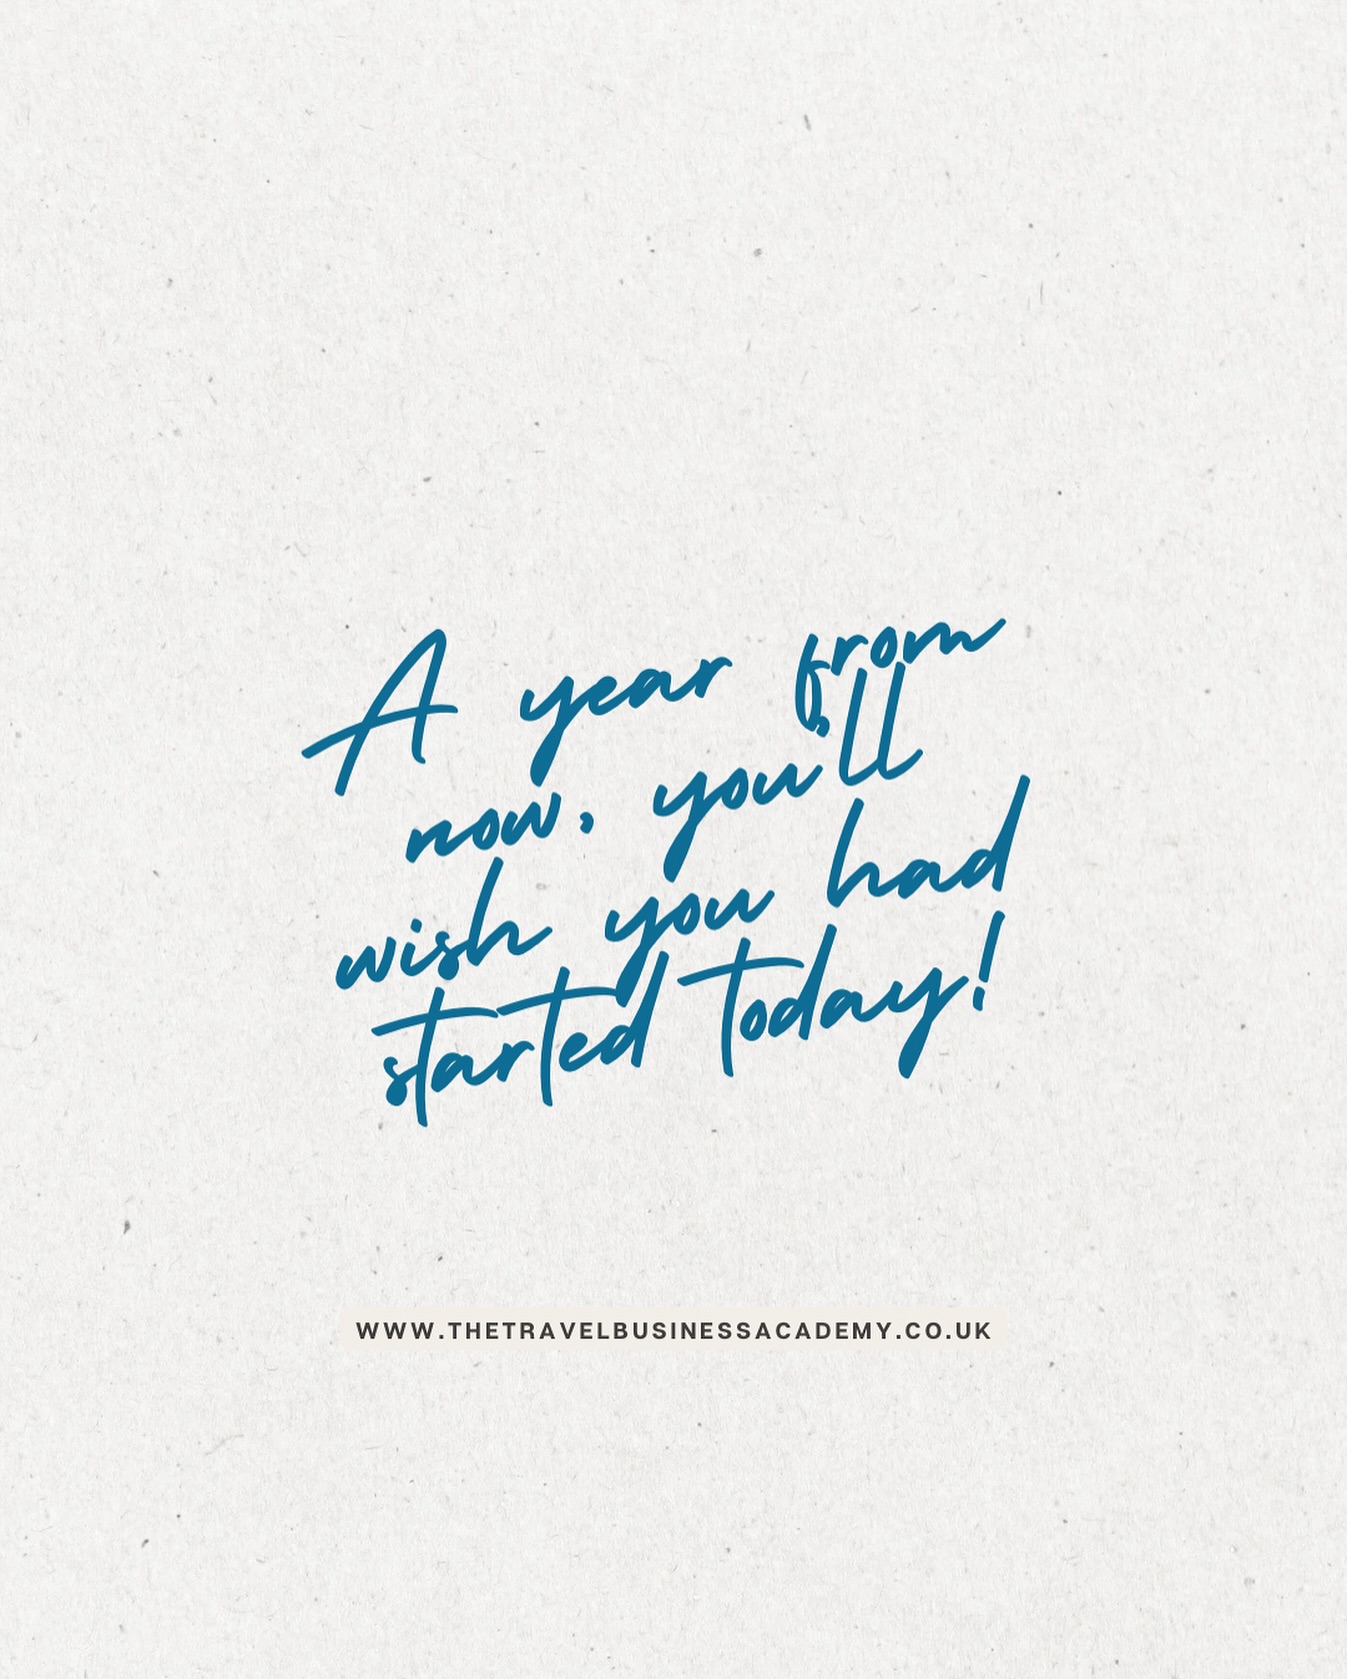 A year from
now, you'll
wish you had
started today!
WWW.THETRAVELBUSINESSACADEMY.CO.UK